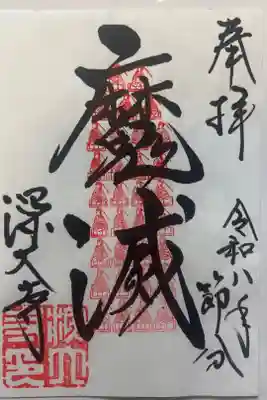 奉拝
令和八年節分
魔滅
深大寺